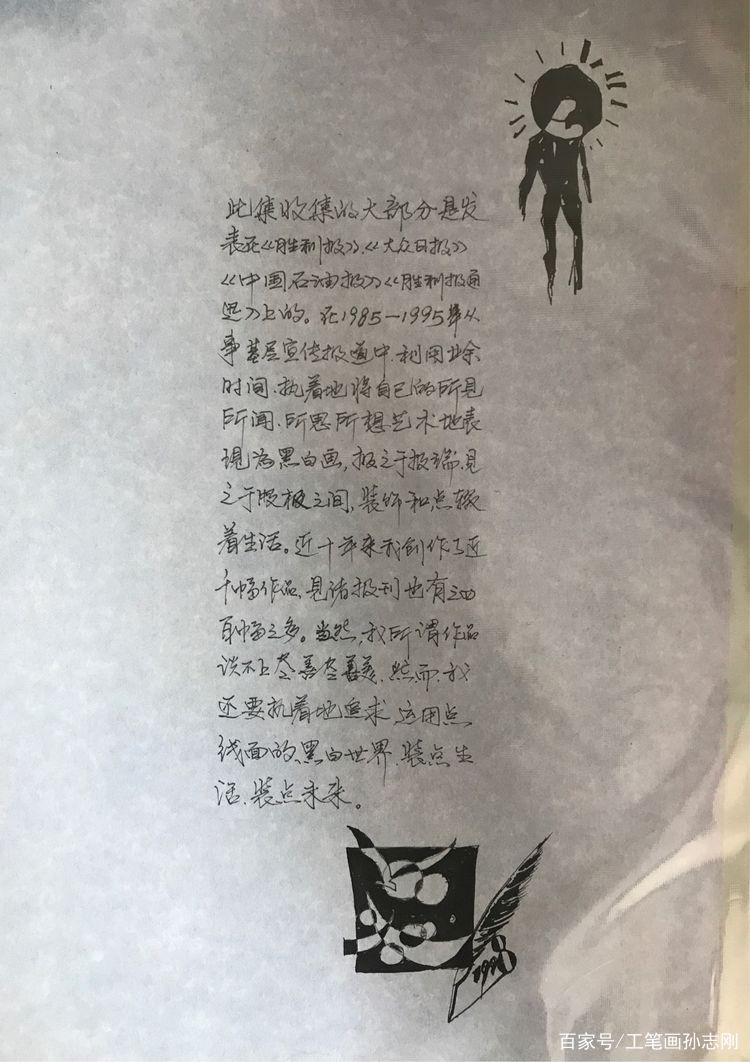 此集收集的大部分是发
表在《胜利报》、《大众日报》
《中国石油报》《胜利报通
迅》上的。在1985—1995年从
事基层宣传报道中、利用业余
时间、执着地将自己的所见
所闻、所思所想艺术地表
现为黑白画，报之于报端、见
之于版极之间，装饰和点缀
着生活。近十年来我创作了近
千幅作品、见诸报刊也有三四
百幅之多。当然，我所谓作品
谈不上尽善尽善美、然而、我
还要执着地追求、运用点
线面的黑白世界、装点生
活、装点未来。
1996
百家号/工笔画孙志刚